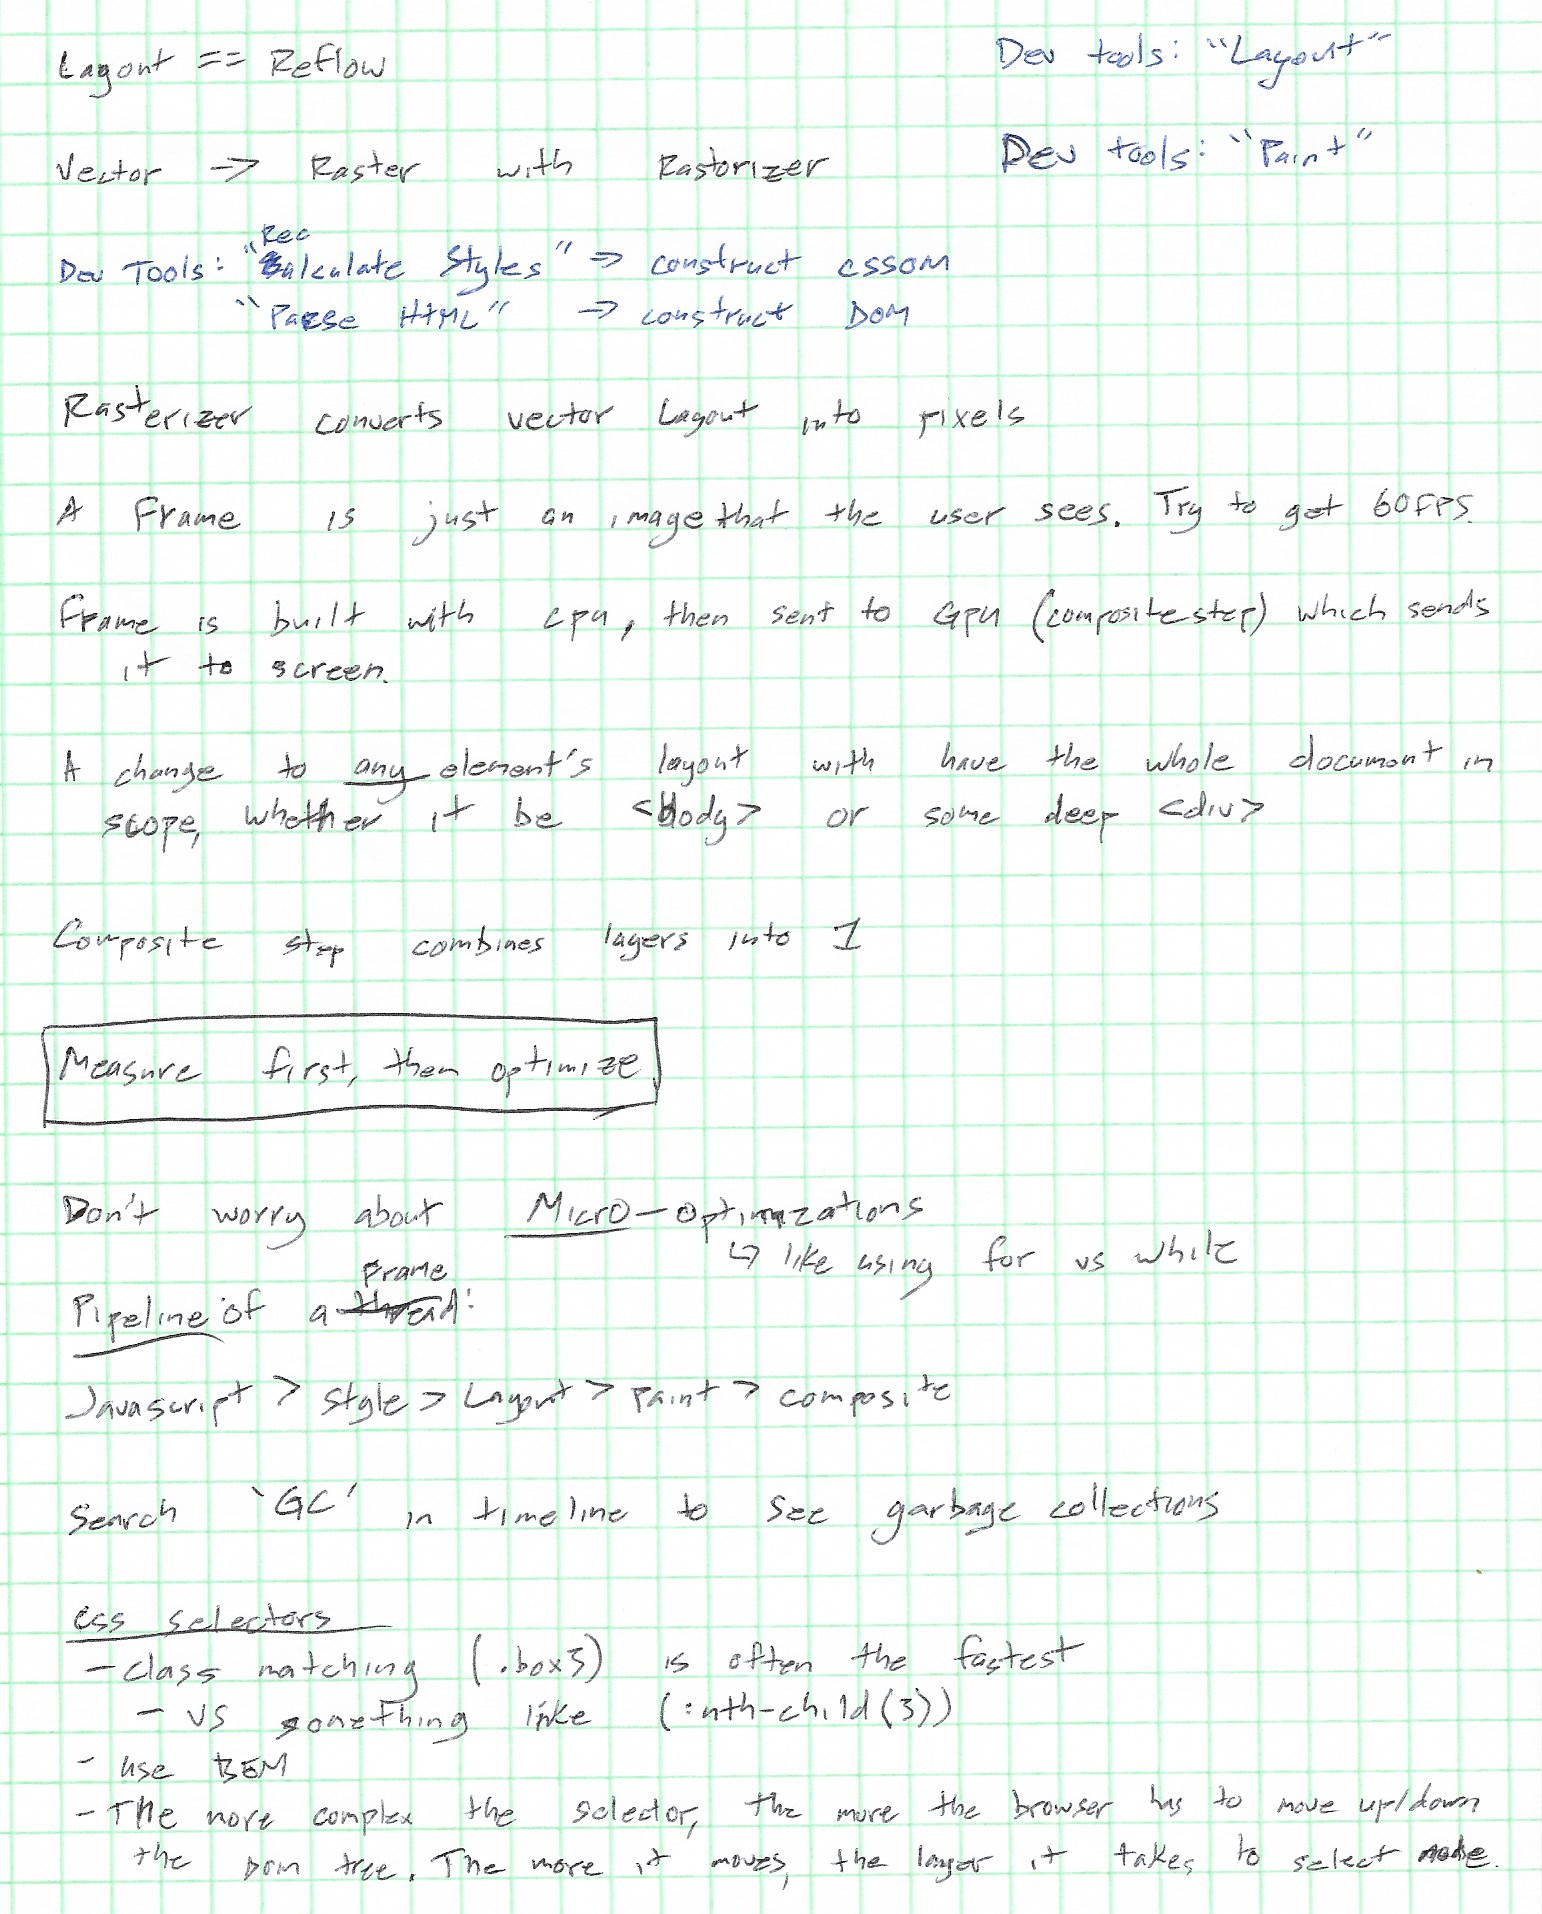 Layout == Reflow
Dev tools: "Layout"
Vector -> Raster with Rastorizer
Dev tools: "Paint"
Rec
Dev Tools: "alculate Styles" => construct CSSOM
"Parse HTML" => construct DOM
Rasterizer converts vector Layout into pixels
A Frame is just an image that the user sees. Try to get 60FPS.
Frame is built with cpu, then sent to GPU (composite step) which sends
it to screen.
A change to any element's layout with have the whole document in
scope, whether it be <body> or some deep <div>
Composite step combines layers into 1
Measure first, then optimize
Don't worry about Micro-optimizations
↳ like using for vs while
Frame
Pipeline of a thread:
Javascript > Style > Layout > Paint > composite
Search 'GC' in timeline to see garbage collections
css selectors
- class matching (.box3) is often the fastest
- vs something like (:nth-child(3))
- use BEM
- The more complex the selector, the more the browser has to move up/down
the DOM tree. The more it moves, the longer it takes to select node.